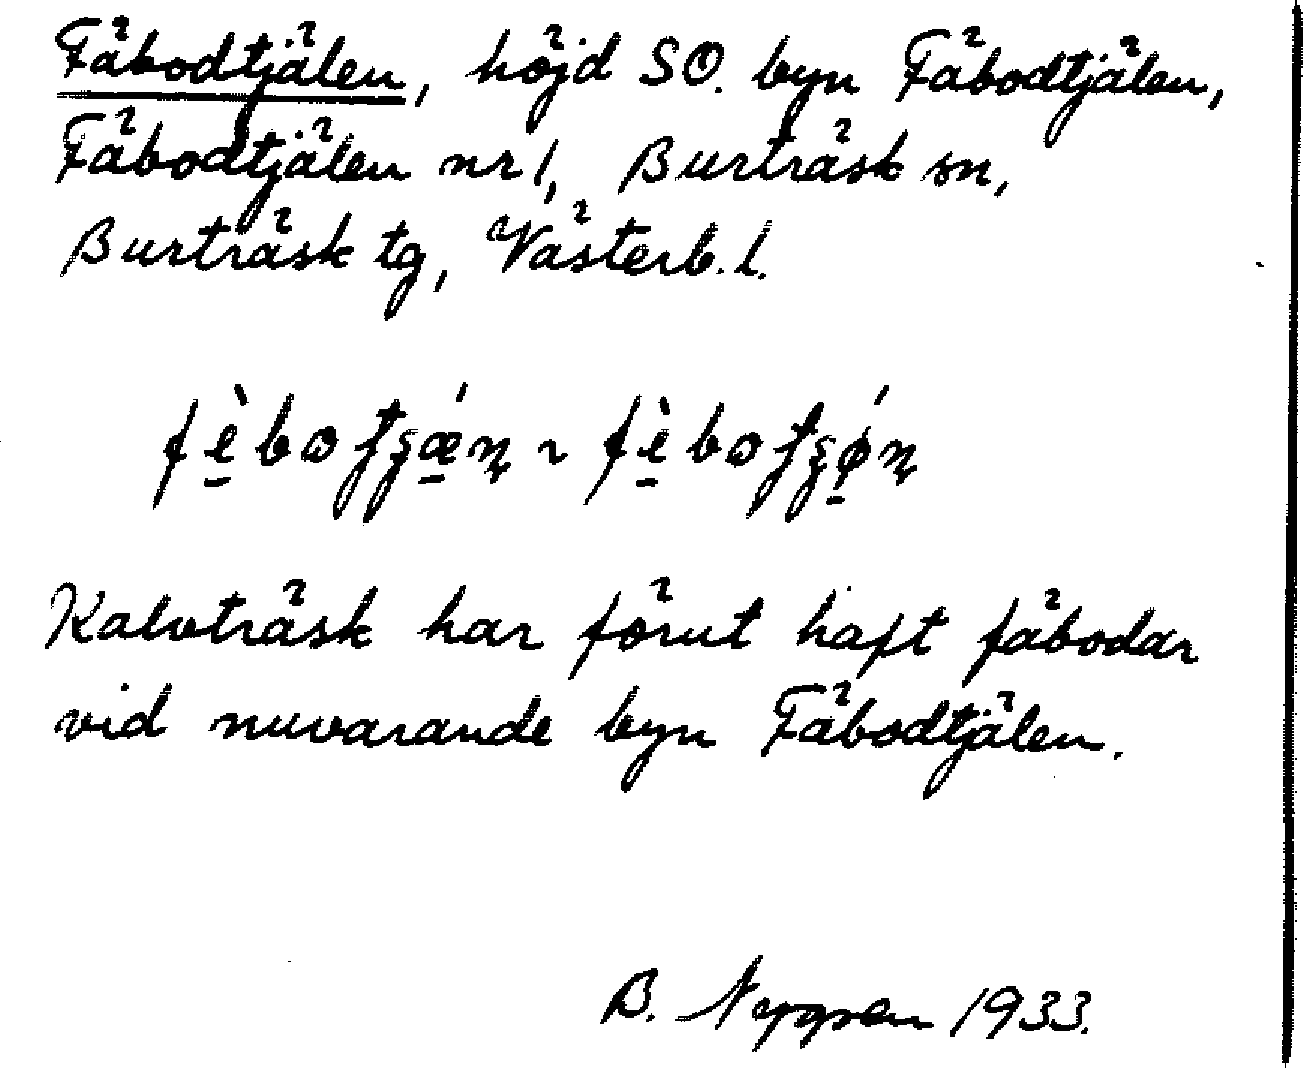 Fäbodtjälen, höjd SO. byn Fäbodtjälen,
Fäbodtjälen nr 1, Burträsk sn,
Burträsk tg, Västerb. l.
Kalvträsk har förut haft fäbodar
vid nuvarande byn Fäbodtjälen.
B. Nygren 1933.